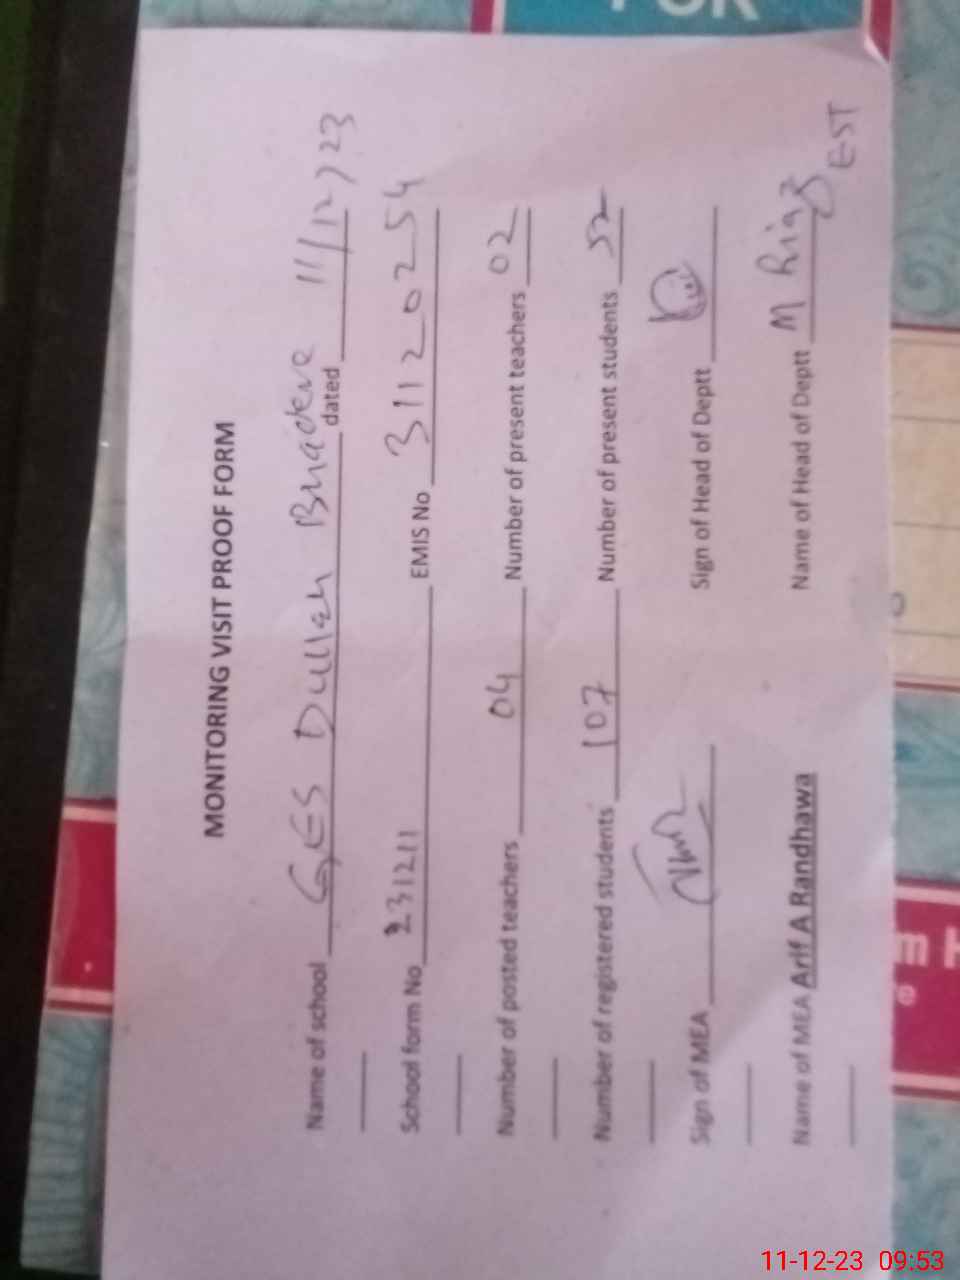 FOR
MONITORING VISIT PROOF FORM
Name of school GES Dullah Bhadera dated 11/12/23
School form No 231211 EMIS No 31120254
Number of posted teachers 04 Number of present teachers 02
Number of registered students 107 Number of present students 52
Sign of MEA Sign of Head of Deptt
Name of MEA Arif A Randhawa Name of Head of Deptt M Riaz EST
m H
e
11-12-23 09:53